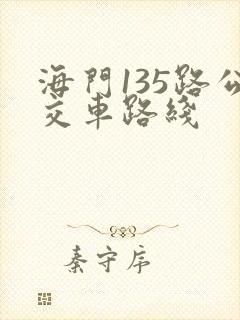 海門135路公
交車路綫
秦守序